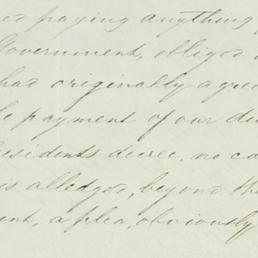 paying anything
Government, obliged
had originally agre
e payment of our de
esidents decree, no ca
is alledged, beyond th
ent, a plea, obviously